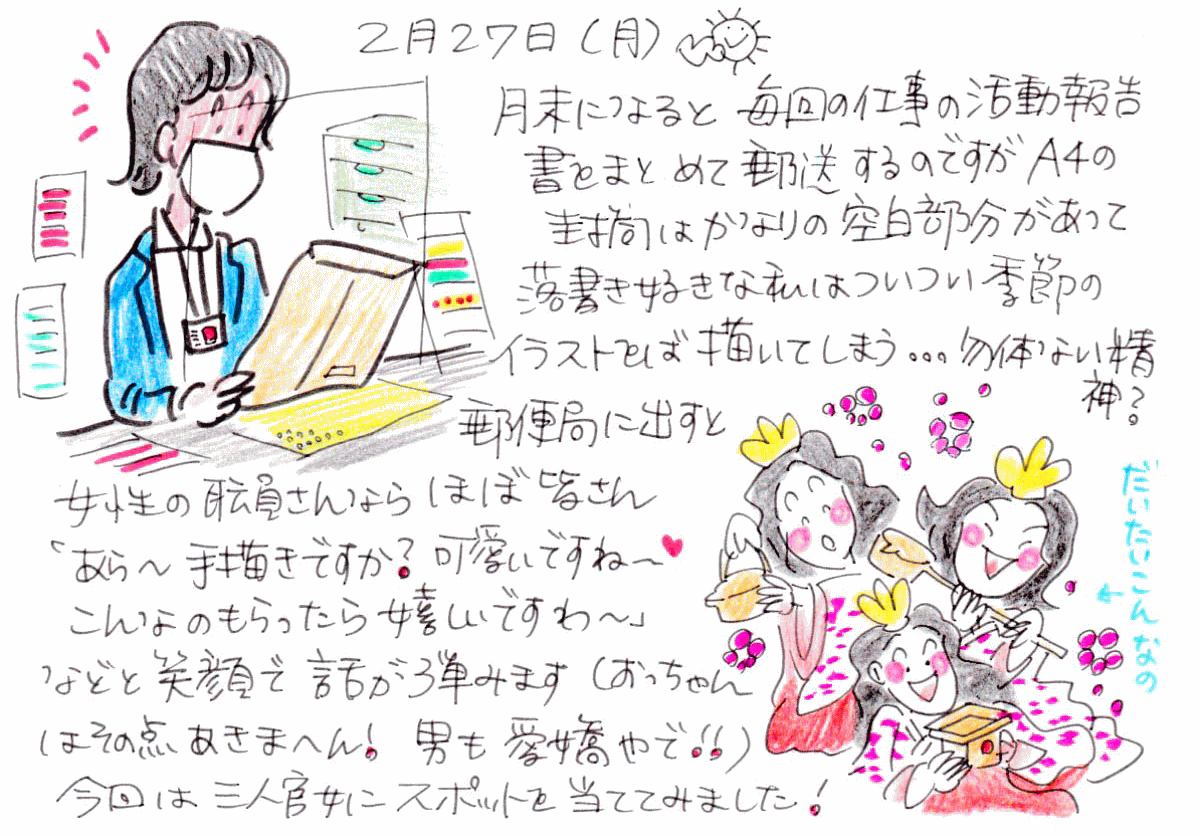 2月27日(月)
月末になると 毎回の仕事の活動報告
書をまとめて郵送するのですがA4の
封筒はかなりの空白部分があって
落書き好きな私はついつい季節の
イラストをば描いてしまう…勿体ない精
神?
郵便局に出すと
女性の職員さんなら ほぼ皆さん
「あら〜 手描きですか? 可愛いですね〜♥
こんなのもらったら嬉しいですわ〜」
などと笑顔で 話が弾みます (おっちゃん
はその点あきまへん! 男も愛嬌やで!!)
今回は三人官女にスポットを当ててみました!
だいたいこんなの
←